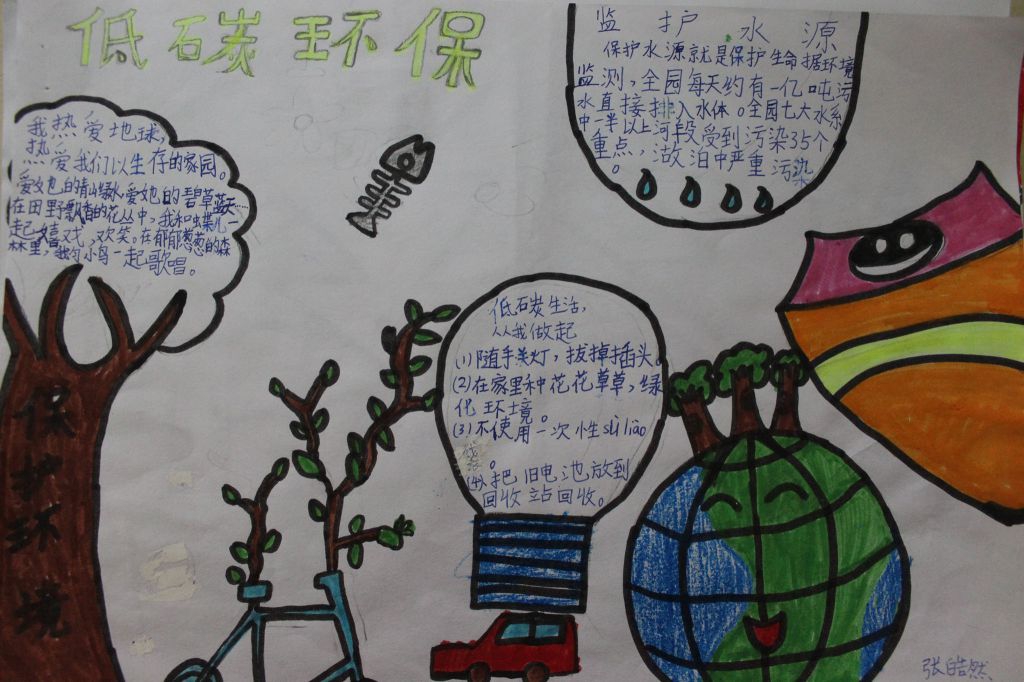 低碳环保
我热爱地球,
热爱我们以生存的家园。
爱她的青山绿水,爱她的碧草蓝天……
在田野飘香的花丛中,我和蝴蝶儿一
起嬉戏,欢笑。在郁郁葱葱的森
林里,我与小鸟一起歌唱。
保护环境
监护水源
保护水源就是保护生命据环境
监测,全国每天约有一亿吨污
水直接排入水体。全国七大水系
中一半以上河段受到污染35个
重点,湖泊中严重污染
。
低碳生活,
从我做起
(1)随手关灯,拔掉插头。
(2)在家里种花花草草,绿
化环境。
(3)不使用一次性sù liào
袋。
(4)把旧电池放到
回收站回收。
张皓然